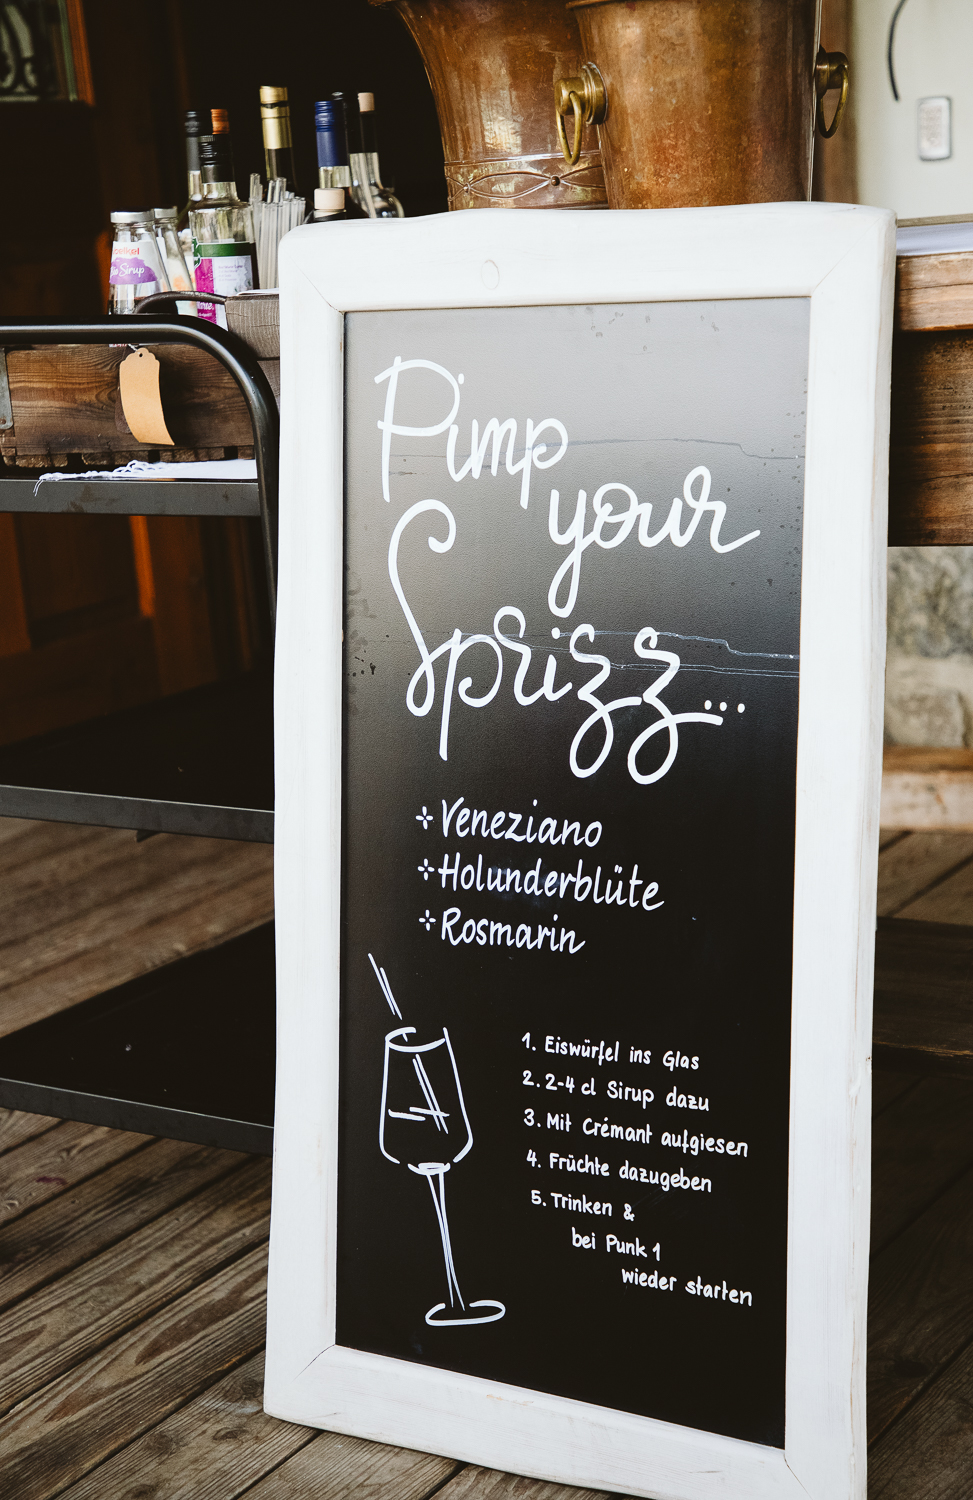 Sirup
Pimp
your
Sprizz...
Veneziano
Holunderblüte
Rosmarin
1. Eiswürfel ins Glas
2. 2-4 cl Sirup dazu
3. Mit Crémant aufgiesen
4. Früchte dazugeben
5. Trinken &
bei Punk 1
wieder starten